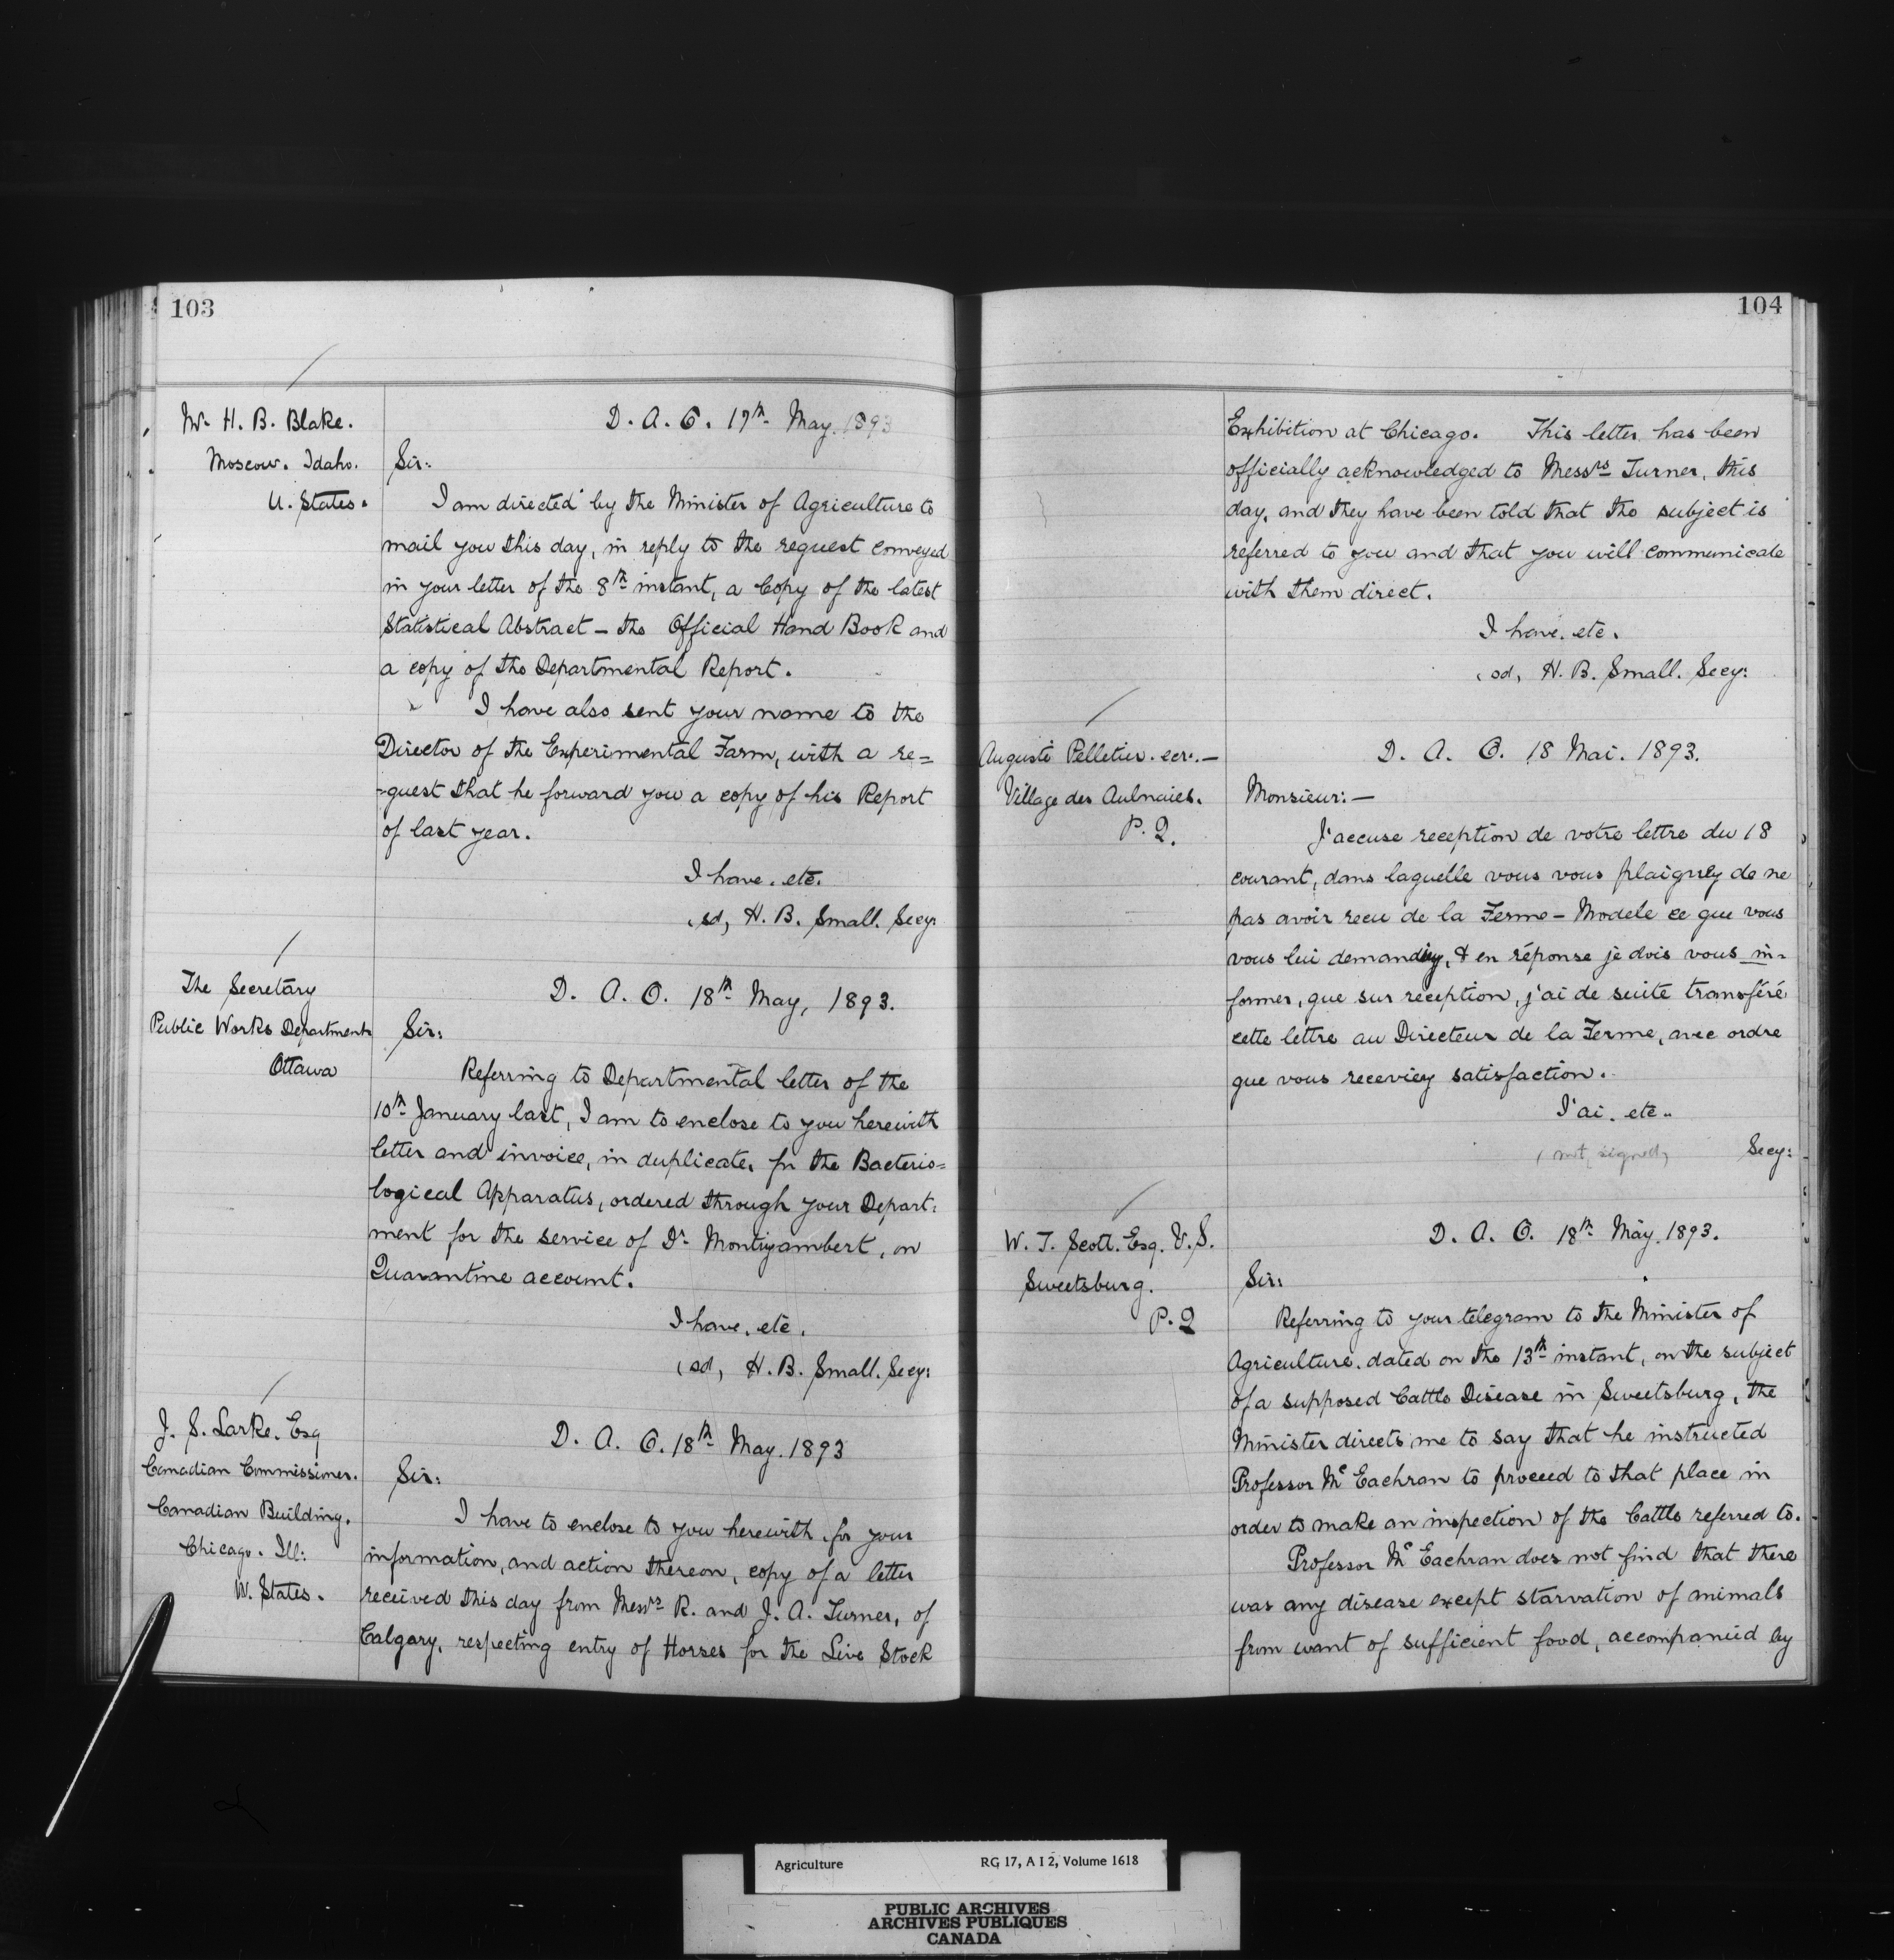 103
Mr. H. B. Blake.
Moscow. Idaho.
U. States.
D. A. O. 17th May. 1893
Sir:
I am directed by the Minister of Agriculture to
mail you this day, in reply to the request conveyed
in your letter of the 8th instant, a Copy of the latest
Statistical Abstract – the Official Hand Book and
a copy of the Departmental Report.
I have also sent your name to the
Director of the Experimental Farm, with a re=
-quest that he forward you a copy of his Report
of last year.
I have. etc.
(sd, H. B. Small. Secy:
The Secretary
Public Works Department
Ottawa
D. A. O. 18th May, 1893.
Sir:
Referring to Departmental letter of the
10th January last, I am to enclose to you herewith
letter and invoice, in duplicate, for the Bacterio=
logical Apparatus, ordered through your Depart:
ment for the service of Dr. Montizambert, on
Quarantine account.
I have. etc.
(sd, H. B. Small. Secy:
J. S. Larke. Esq
Canadian Commissioner.
Canadian Building.
Chicago. Ill:
U. States.
D. A. O. 18th May. 1893
Sir:
I have to enclose to you herewith, for your
information, and action thereon, copy of a letter
received this day from Messrs R. and J. A. Turner, of
Calgary, respecting entry of Horses for the Live Stock
104
Exhibition at Chicago. This letter has been
officially acknowledged to Messrs Turner, this
day, and they have been told that the subject is
referred to you and that you will communicate
with them direct.
I have. etc.
(sd, H. B. Small. Secy:
Auguste Pelletier. ecr. –
Village des Aulnaies.
P. Q.
D. A. O. 18 Mai. 1893.
Monsieur: –
J'accuse reception de votre lettre du 18
courant, dans laquelle vous vous plaignez de ne
pas avoir recu de la Ferme – Modele ce que vous
vous lui demandiez, & en réponse je dois vous in-
former, que sur réception, j'ai de suite transféré
cette lettre au Directeur de la Ferme, avec ordre
que vous receviez satisfaction.
J'ai. etc..
(not signed) Secy:
W. T. Scott. Esq. V. S.
Sweetsburg.
P. Q
D. A. O. 18th May. 1893.
Sir:
Referring to your telegram to the Minister of
Agriculture. dated on the 13th instant, on the subject
of a supposed Cattle Disease in Sweetsburg, the
Minister directs me to say that he instructed
Professor Mc Eachran to proceed to that place in
order to make an inspection of the Cattle referred to.
Professor Mc Eachran does not find that there
was any disease except starvation of animals
from want of sufficient food, accompanied by
Agriculture RG 17, A I 2, Volume 1618
PUBLIC ARCHIVES
ARCHIVES PUBLIQUES
CANADA